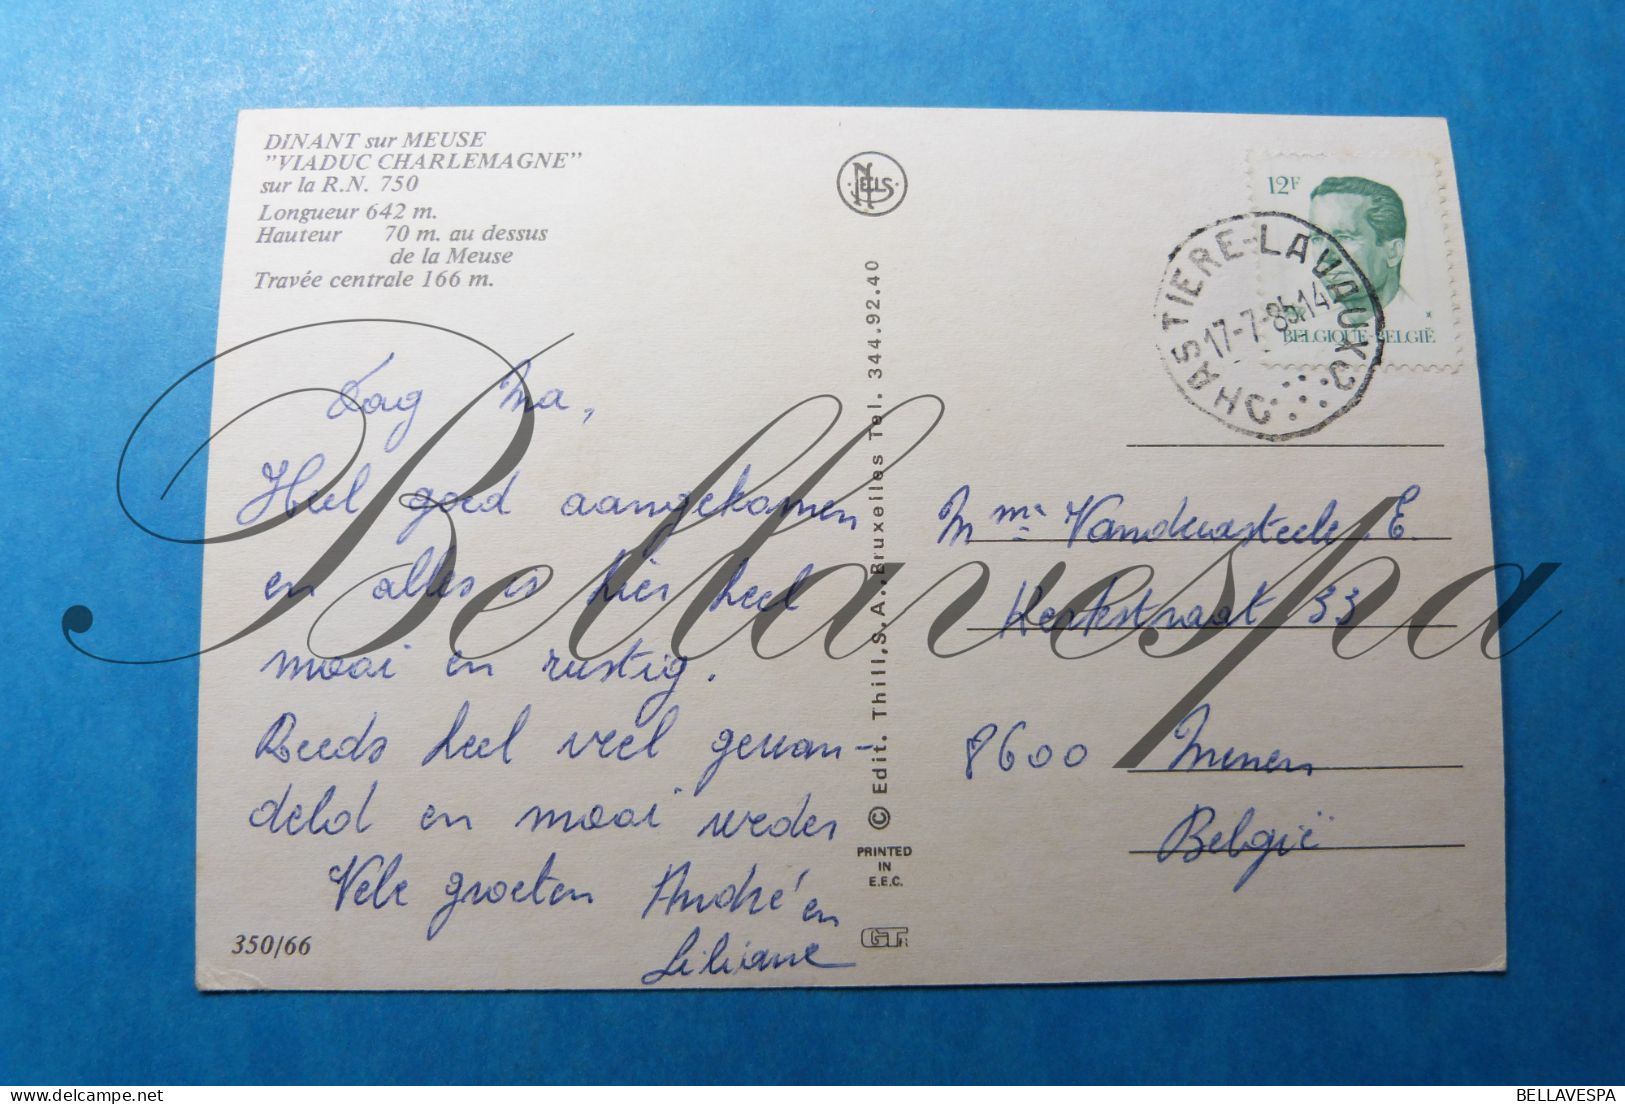 DINANT sur MEUSE
"VIADUC CHARLEMAGNE"
sur la R.N. 750
Longueur 642 m.
Hauteur 70 m. au dessus
de la Meuse
Travée centrale 166 m.
NELS
12F
BELGIQUE-BELGIË
HASTIERE-LAVAUX
17-7-85.14
C C
Dag Ma,
Heel goed aangekomen
en alles is hier heel
mooi en rustig.
Reeds heel veel gewan-
deld en mooi weder
Vele groeten André en
Liliane
350/66
© Edit. Thill,S.A.,Bruxelles Tel. 344.92.40
PRINTED
IN
E.E.C.
GT
Mme Vandewasteele E.
Kerkstraat 33
8600 Menen
België
Bellavespa
BELLAVESPA